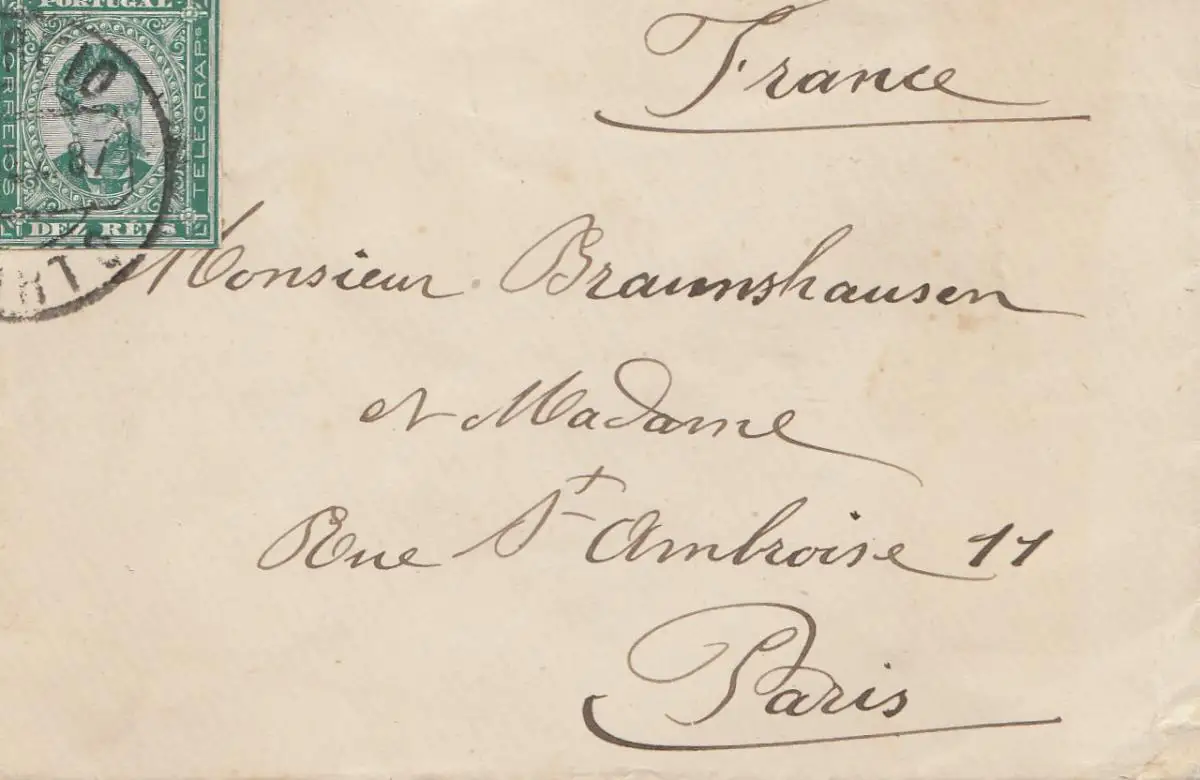 PORTUGAL
CORREIOS
TELEGRAP.S
10
87
DEZ REIS
France
Monsieur Braunshausen
et Madame
Rue St Ambroise 11
Paris